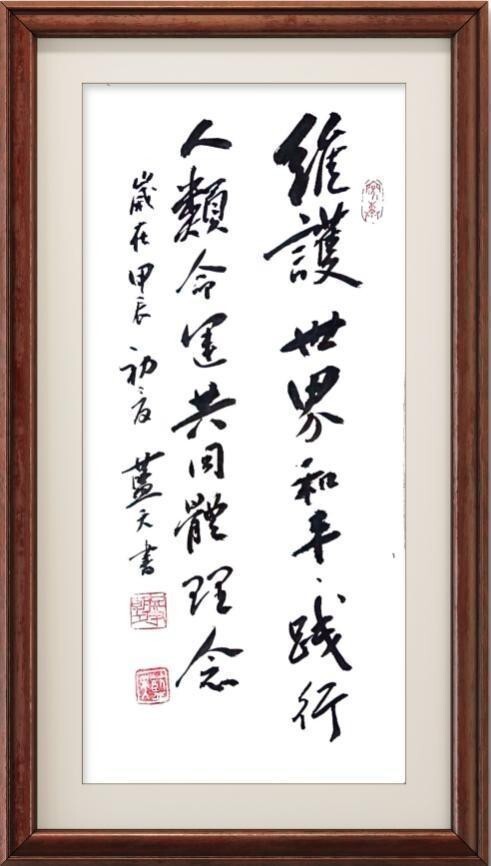 維護世界和平、踐行
人類命運共同體理念
歲在甲辰初夏藍天書